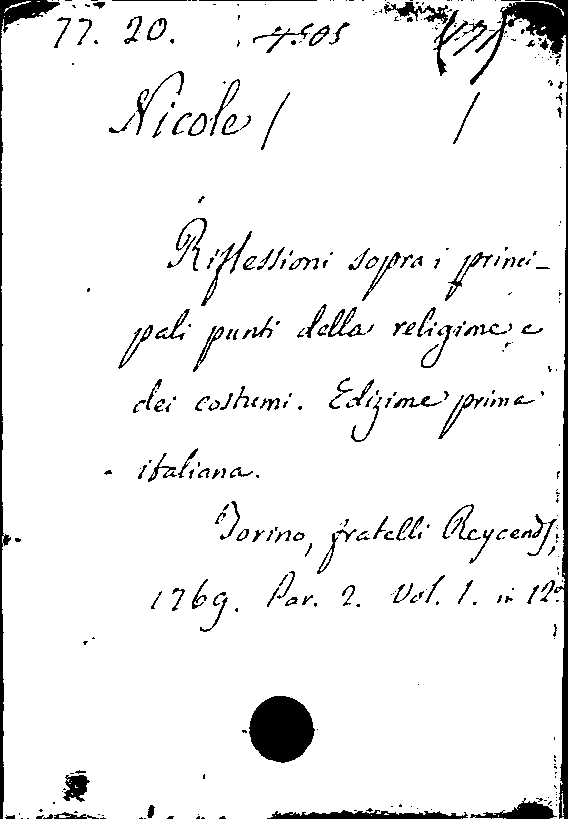 77. 20. 4505
Nicole /  /
Riflessioni sopra i princi-
pali punti della religione e
dei costumi. Edizione prima
italiana.
Torino, fratelli Reycends,
1769. Par. 2. Vol. 1. in 12º